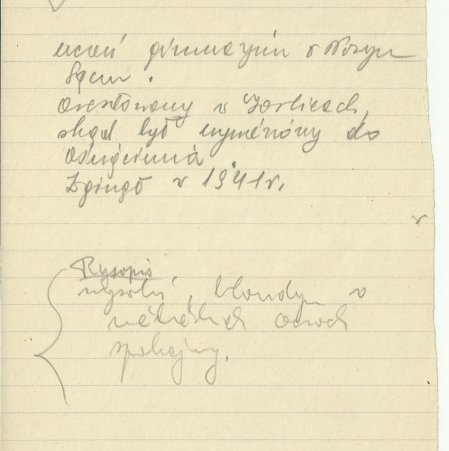 uczeń gimnazjum w Nowym
Sączu.
Aresztowany w Gorlicach,
skąd był wywieziony do
Oświęcimia
Zginął w 1941 r.
Rysopis
wysoki, blondyn o
niebieskich oczach
spokojny.